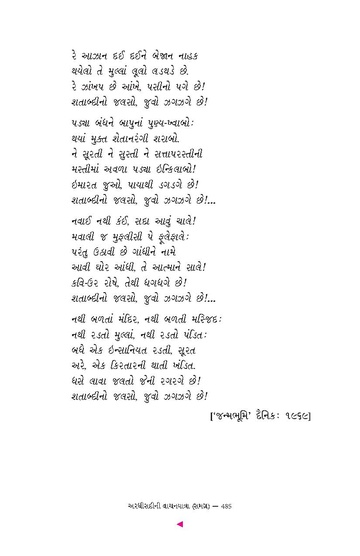 રે આઝાન દઈ દઈને બેજાન નાહક
થયેલો તે મુલ્લાં લૂલો લડથડે છે.
રે ઝાંખપ છે આંખે, પસીનો પગે છે!
શતાબ્દીનો જલસો, જુવો ઝગઝગે છે!
પડ્યા બંધને બાપુનાં પુણ્ય-ખ્વાબોઃ
થયાં મુક્ત શેતાનરંગી શરાબો.
ને સૂરતી ને સુસ્તી ને સત્તાપરસ્તીની
મસ્તીમાં અવળા પડ્યા ઇન્કિલાબો!
ઇમારત જુઓ, પાયાથી ડગડગે છે!
શતાબ્દીનો જલસો, જુવો ઝગઝગે છે!...
નવાઈ નથી કંઈ, સદા આવું ચાલે!
મવાલી જ મુફલીસી પે ફૂલેફાલેઃ
પરંતુ ઉઠાવી છે ગાંધીને નામે
આવી ઘોર આંધી, તે આત્માને સાલે!
કવિ-ઉર રોષે, તેથી ધગધગે છે!
શતાબ્દીનો જલસો, જુવો ઝગઝગે છે!...
નથી બળતાં મંદિર, નથી બળતી મસ્જિદઃ
નથી રડતો મુલ્લાં, નથી રડતો પંડિતઃ
બધે એક ઇન્સાનિયત રડતી, સૂરત
અરે, એક કિરતારની થાતી ખંડિત.
ધસે લાવા જલતો જેની રગરગે છે!
શતાબ્દીનો જલસો, જુવો ઝગઝગે છે!
['જન્મભૂમિ' દૈનિકઃ ૧૯૬૯]
અરધીસદીની વાચનયાત્રા (સમગ્ર) — 485